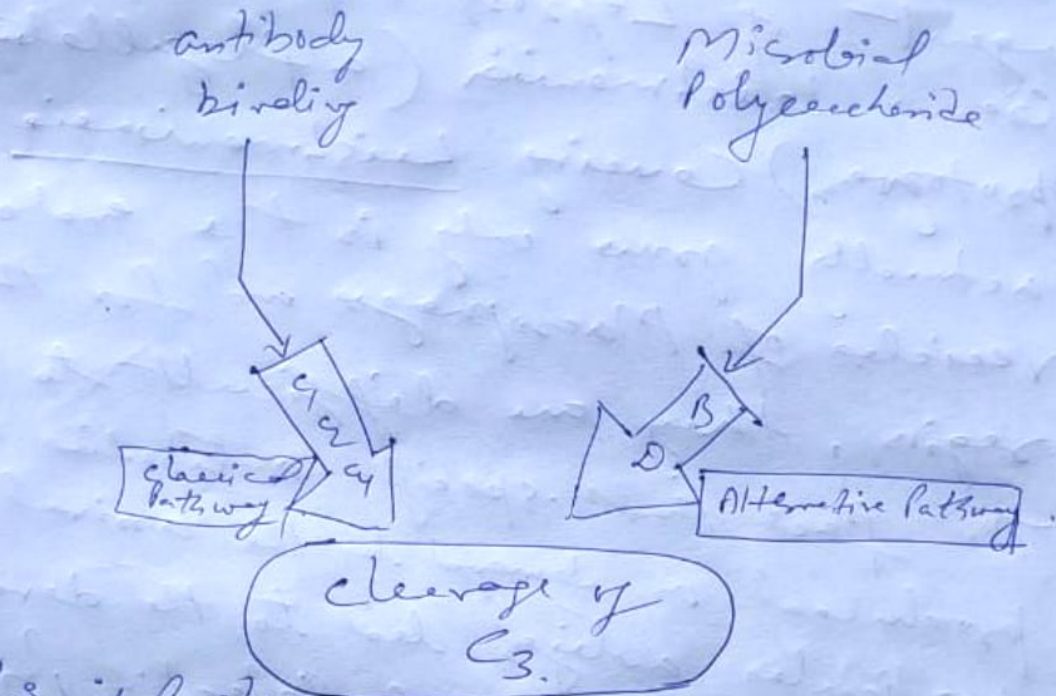 antibody
binding
Microbial
Polysaccharide
C1
C2
C4
Classical
Pathway
B
D
Alternative Pathway
Cleavage of
C3.